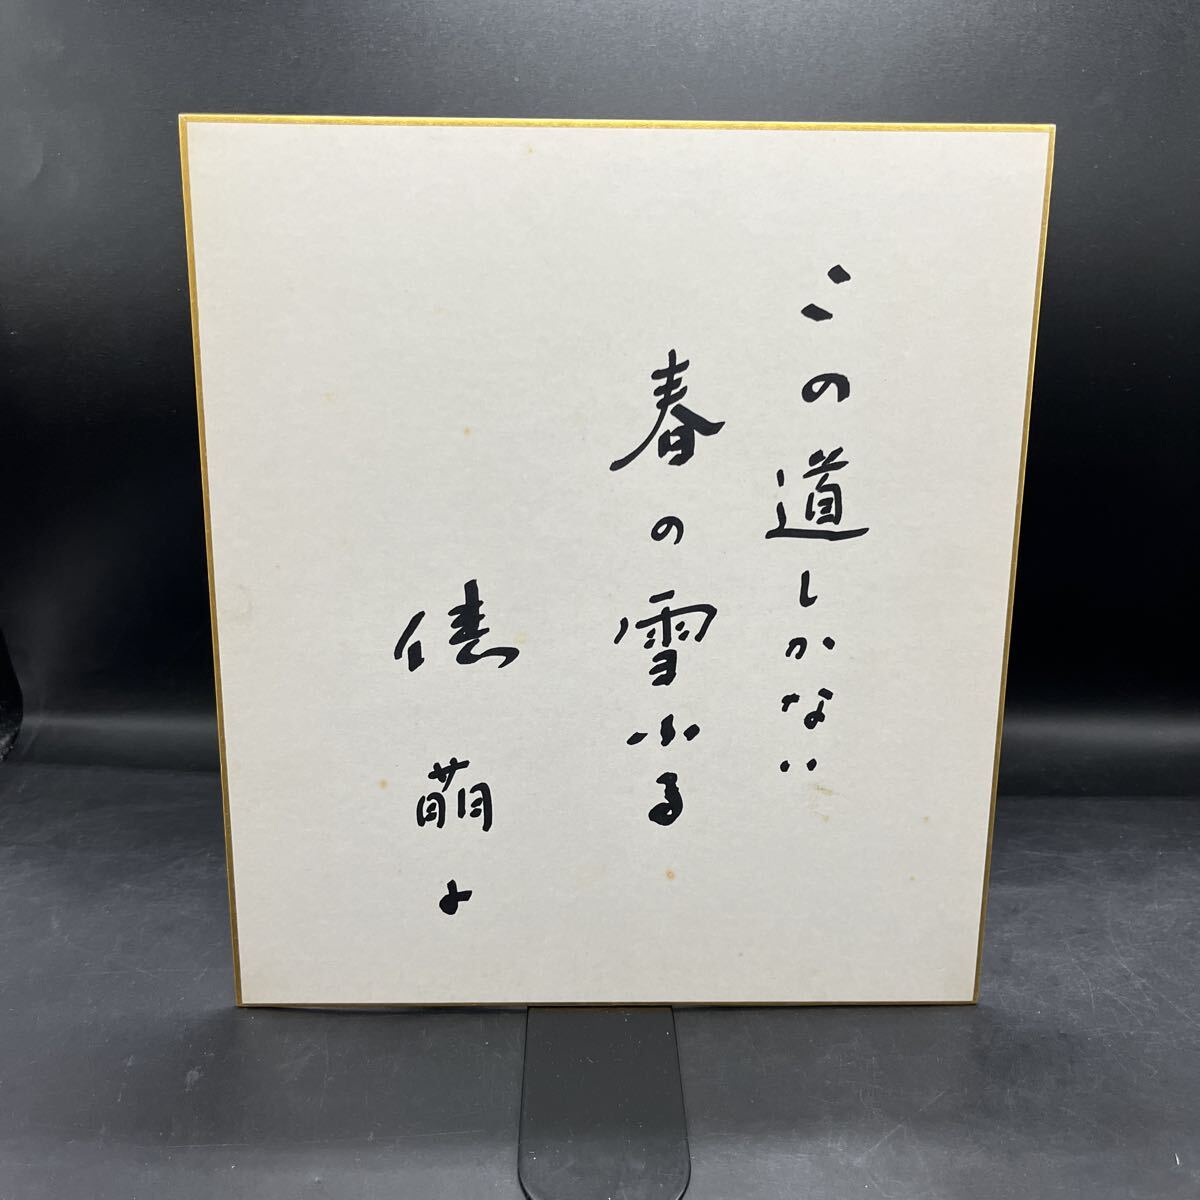 この道しかない
春の雪ふる
俵萠子